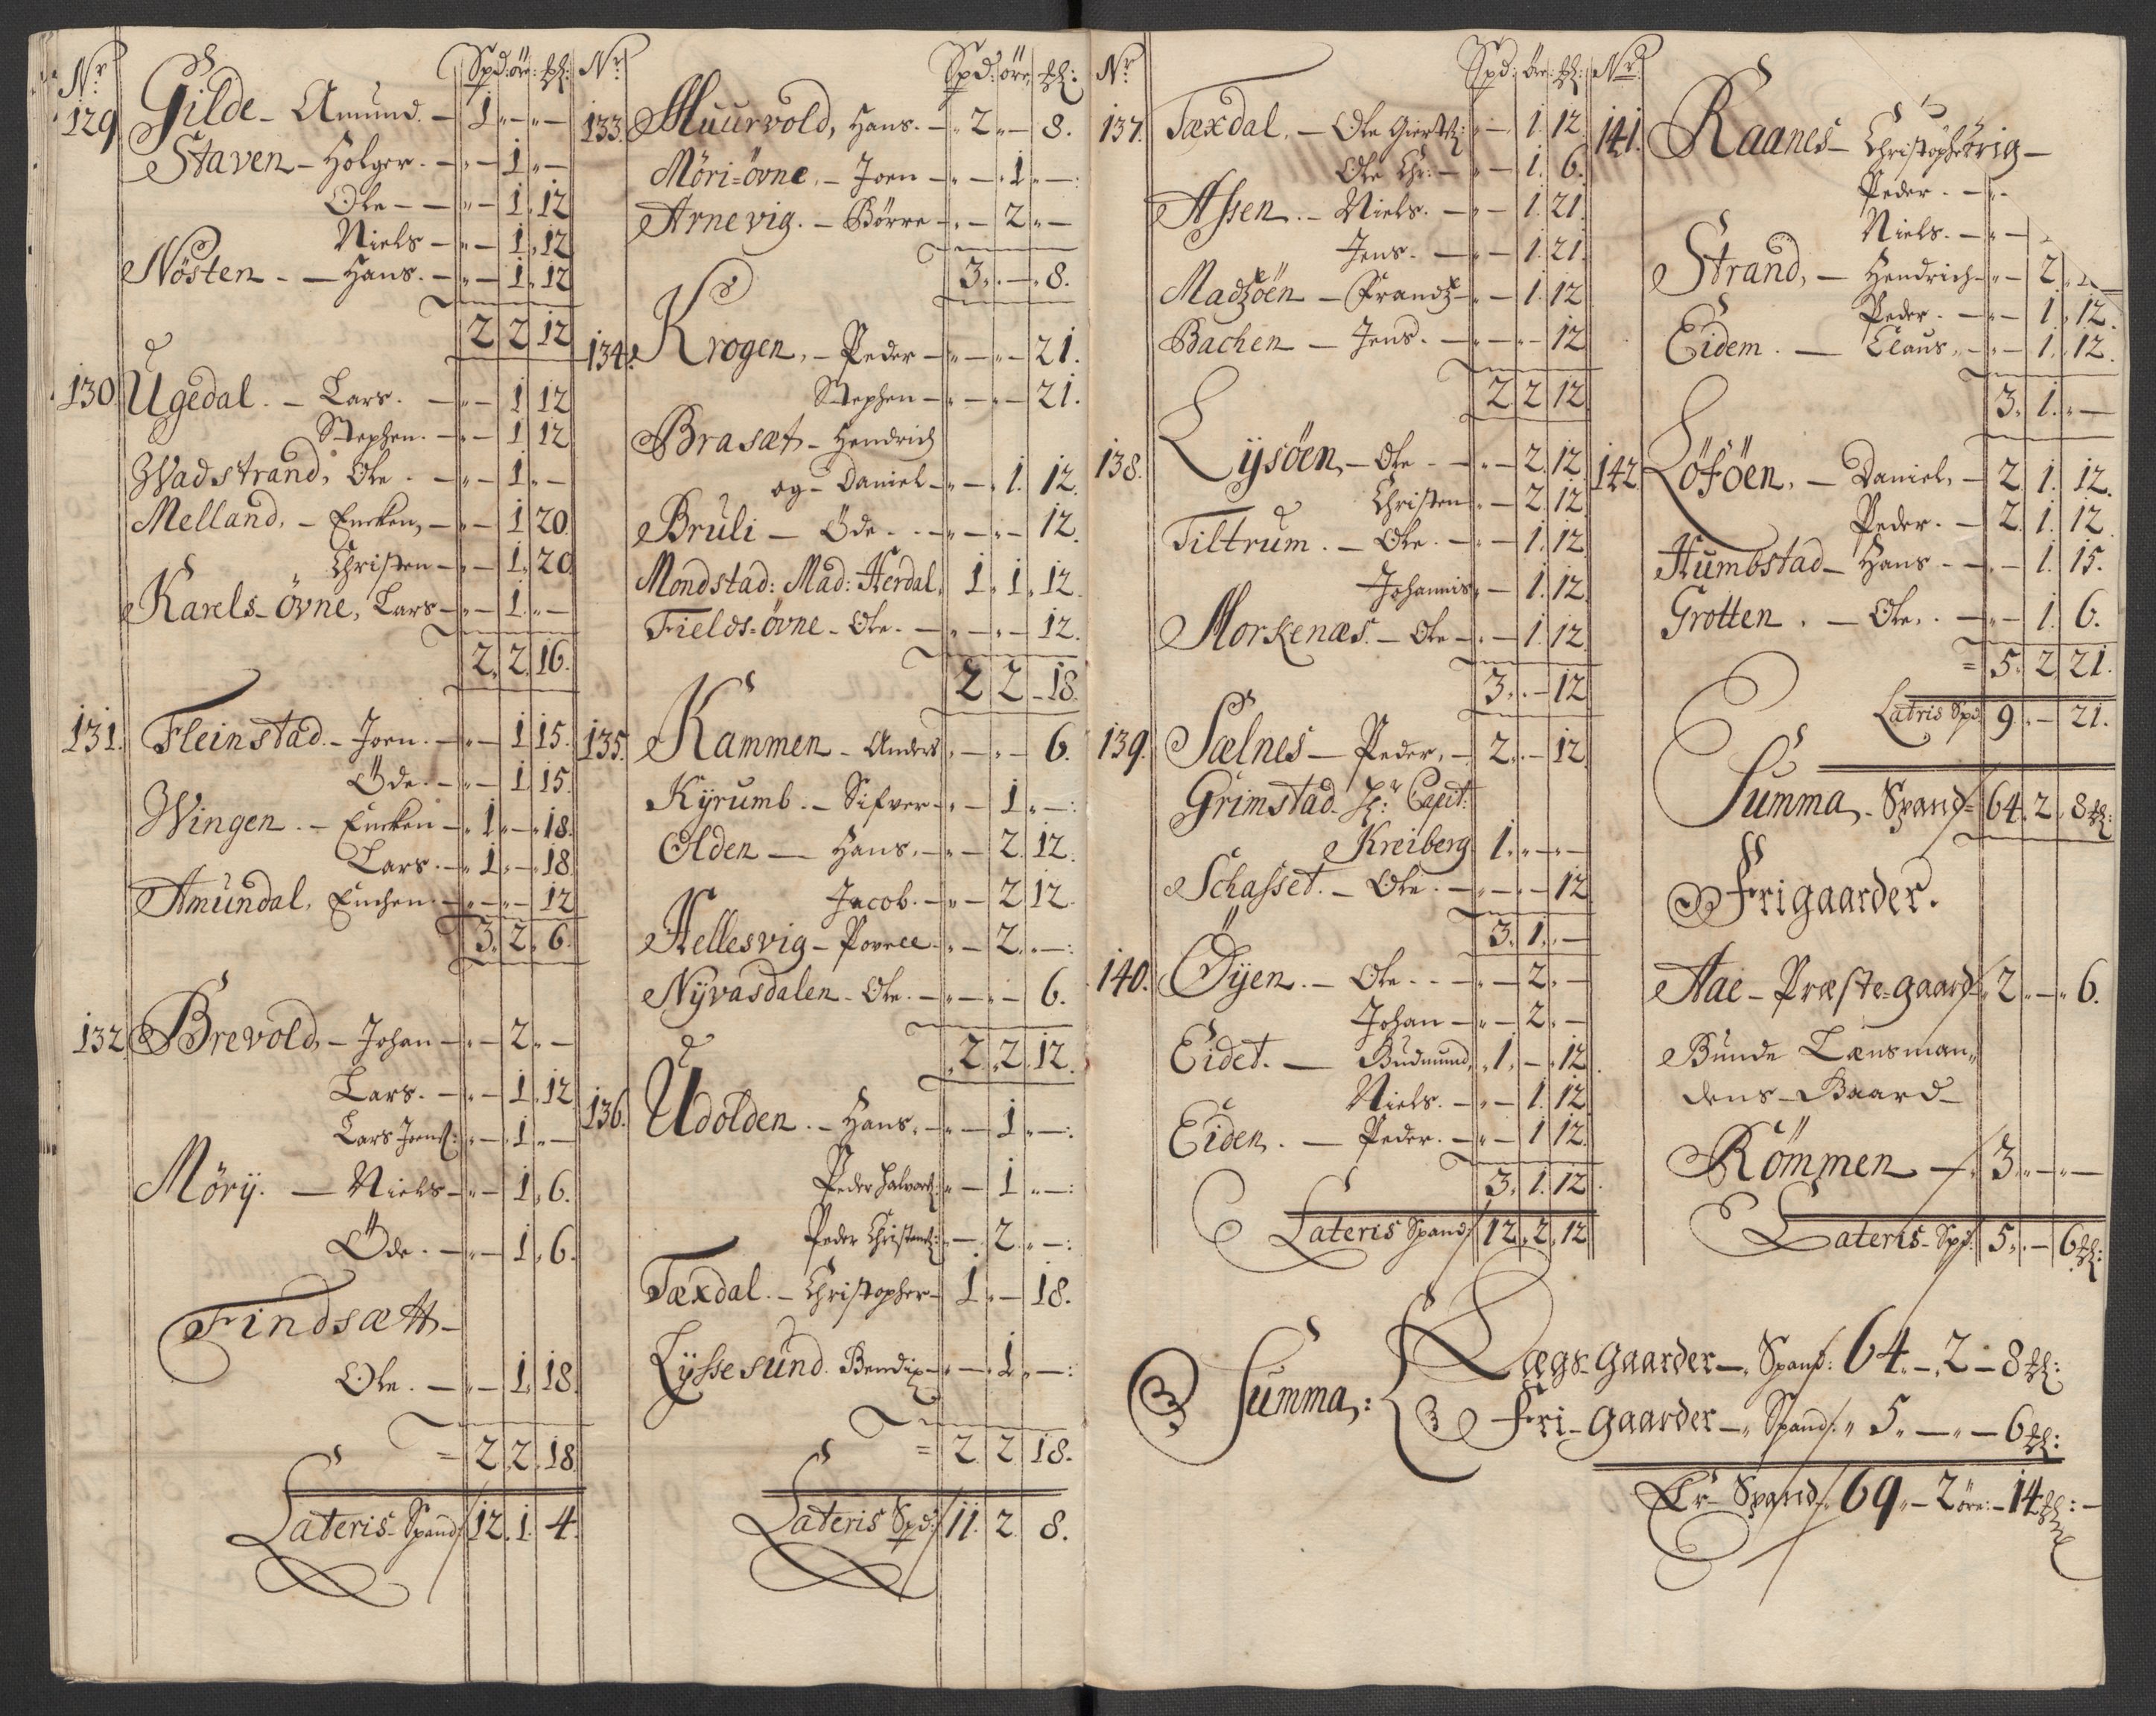 Nr Spd: öre: ₰:
129 Gilde - Amund. - 1 „ - „ -
Staven - Holger. - „ - 1 „ -
Ole - - „ - 1 „ 12
Niels - „ - 1 „ 12
Nösten - - Hans. - „ - 1 „ 12
2 2 12
130 Ugedal. - Lars. - „ - 1 12
Stephen. - „ - 1 12
Wadstrand, Ole. - „ - 1 „ -
Melland, - Encken, - „ - 1 20
Christen - „ - 1 „ 20
Karels-övne, Lars - „ - 1 „ -
2. 2. 16.
131. Fleinstad. - Joen. - „ - 1 15.
Öde. - „ - 1 15.
Wingen. - Encken - „ 1 „ - „ 18.
Lars. - „ 1 „ - „ 18.
Amundal, Enchen. - „ - „ - 12
3. 2. 6.
132 Brevold, - Johan - „ - 2 „ -
Lars. - „ - 1 „ 12
Lars Joens: „ - 1 „ -
Mörÿ. - Niels - „ - 1 „ 6.
Öde. - „ - 1 „ 6.
Findsætt -
Ole. - „ - 1. 18.
= 2 „ 2. 18
Lateris Spand: 12. 1. 4.
Nr Spd: öre, ₰:
133. Muurvold, Hans. - „ 2 „ - 8.
Möri=övne, - Joen - „ - „ 1 „ - :
Arnevig. - Börre - „ - 2 „ -
3. „ - „ 8.
134. Krogen, - Peder - „ - „ - 21.
Stephen - „ - „ - 21.
Brasæt - Hendrich
og - Daniel - „ - „ 1. 12.
Bruli - Öde. - - „ - „ - 12.
Mondstad: Mad: Herdal, 1 „ 1 „ 12.
Fields=övne - Ole. - „ - „ - 12.
2 2 - 18.
135. Kammen - Anders „ - „ - 6.
Kÿrumb. - Sifver - „ - 1 „ - :
Olden - Hans. - „ - 2. 12.
Jacob. - „ - 2 12.
Hellesvig - Povell - „ - 2. „ - :
Nÿvasdalen - Ole. - „ - „ - 6.
„ 2. „ 2. 12.
136. Udolden. - Hans. - „ - 1 „ - :
Peder Halvors: „ - 1 „ - :
Peder Christens: „ - 2 „ - :
Tæxdal. - Christopher - 1 „ - 18.
Lÿssesund. Bendix - „ - „ 1 „ - :
= 2. 2 18.
Lateris Spd: 11. 2. 8.
Nr Spd: öre: ₰:
137. Tæxdal. - Ole Giertz: „ - 1. 12.
Ole Chr: - „ - 1. 6.
Assen. - Niels. - „ - 1. 21.
Jens. - „ - 1. 21.
Madzöen - Frandz - „ - 1. 12
Bachen - Jens. - „ - „ - 12
2 2 12
138. Lÿsöen, - Ole - - „ - 2. 12
Christen „ - 2. 12
Tiltrum. - Ole. - „ - 1. 12
Johannis „ - 1. 12
Morkenæs. - Ole - „ - 1. 12
3. „ - 12
139. Sælnes - Peder, - 2 „ - 12
Grimstad. Hr. Capit:
Kreiberg 1. „ - „ -
Schasset. - Ole. - „ - „ - 12
3. 1. „ -
140. Öÿen. - Ole. - - „ - 2. „ -
Johan - „ - 2. „ -
Eidet. - Budmund, „ 1. „ - „ 12.
Niels. - „ - 1. 12
Eiden. - Peder. - „ - 1 12.
3. 1. 12.
Lateris Spand: 12. 2. 12
Nr
141. Raanes - Christopher
Peder. - „ -
Niels. - „ -
Strand, - Hendrich - „ - 2
Peder. - „ - 1. „ 12.
Eidem. - Claus. - „ - 1. „ 12.
3. 1. „ -
142. Löföen, - Daniel, - 2. 1. 12.
Peder. - 2. 1. 12
Humbstad - Hans - - „ - 1. 15.
Grotten. - Ole. . - „ - 1. 6.
= 5. 2. 21.
Latris Spd 9. „ - 21.
Summa, - Spand= 64. 2. 8 ₰:
Frigaarder.
Aae - Præste=gaard - 2 „ - „ 6.
Bunde Lænsman„
dens - Gaard -
Römmen - 3. „ - „ -
Lateris - Spd: 5. „ - 6 ₰:
Summa,: Lægs-Gaarder - „ Spand: 64. - „ 2 - 8 ₰:
Fri-Gaarder - „ Spand: „ 5. „ - „ - 6 ₰:
Er - Spand: 69. - 2 öre: - 14 ₰: -